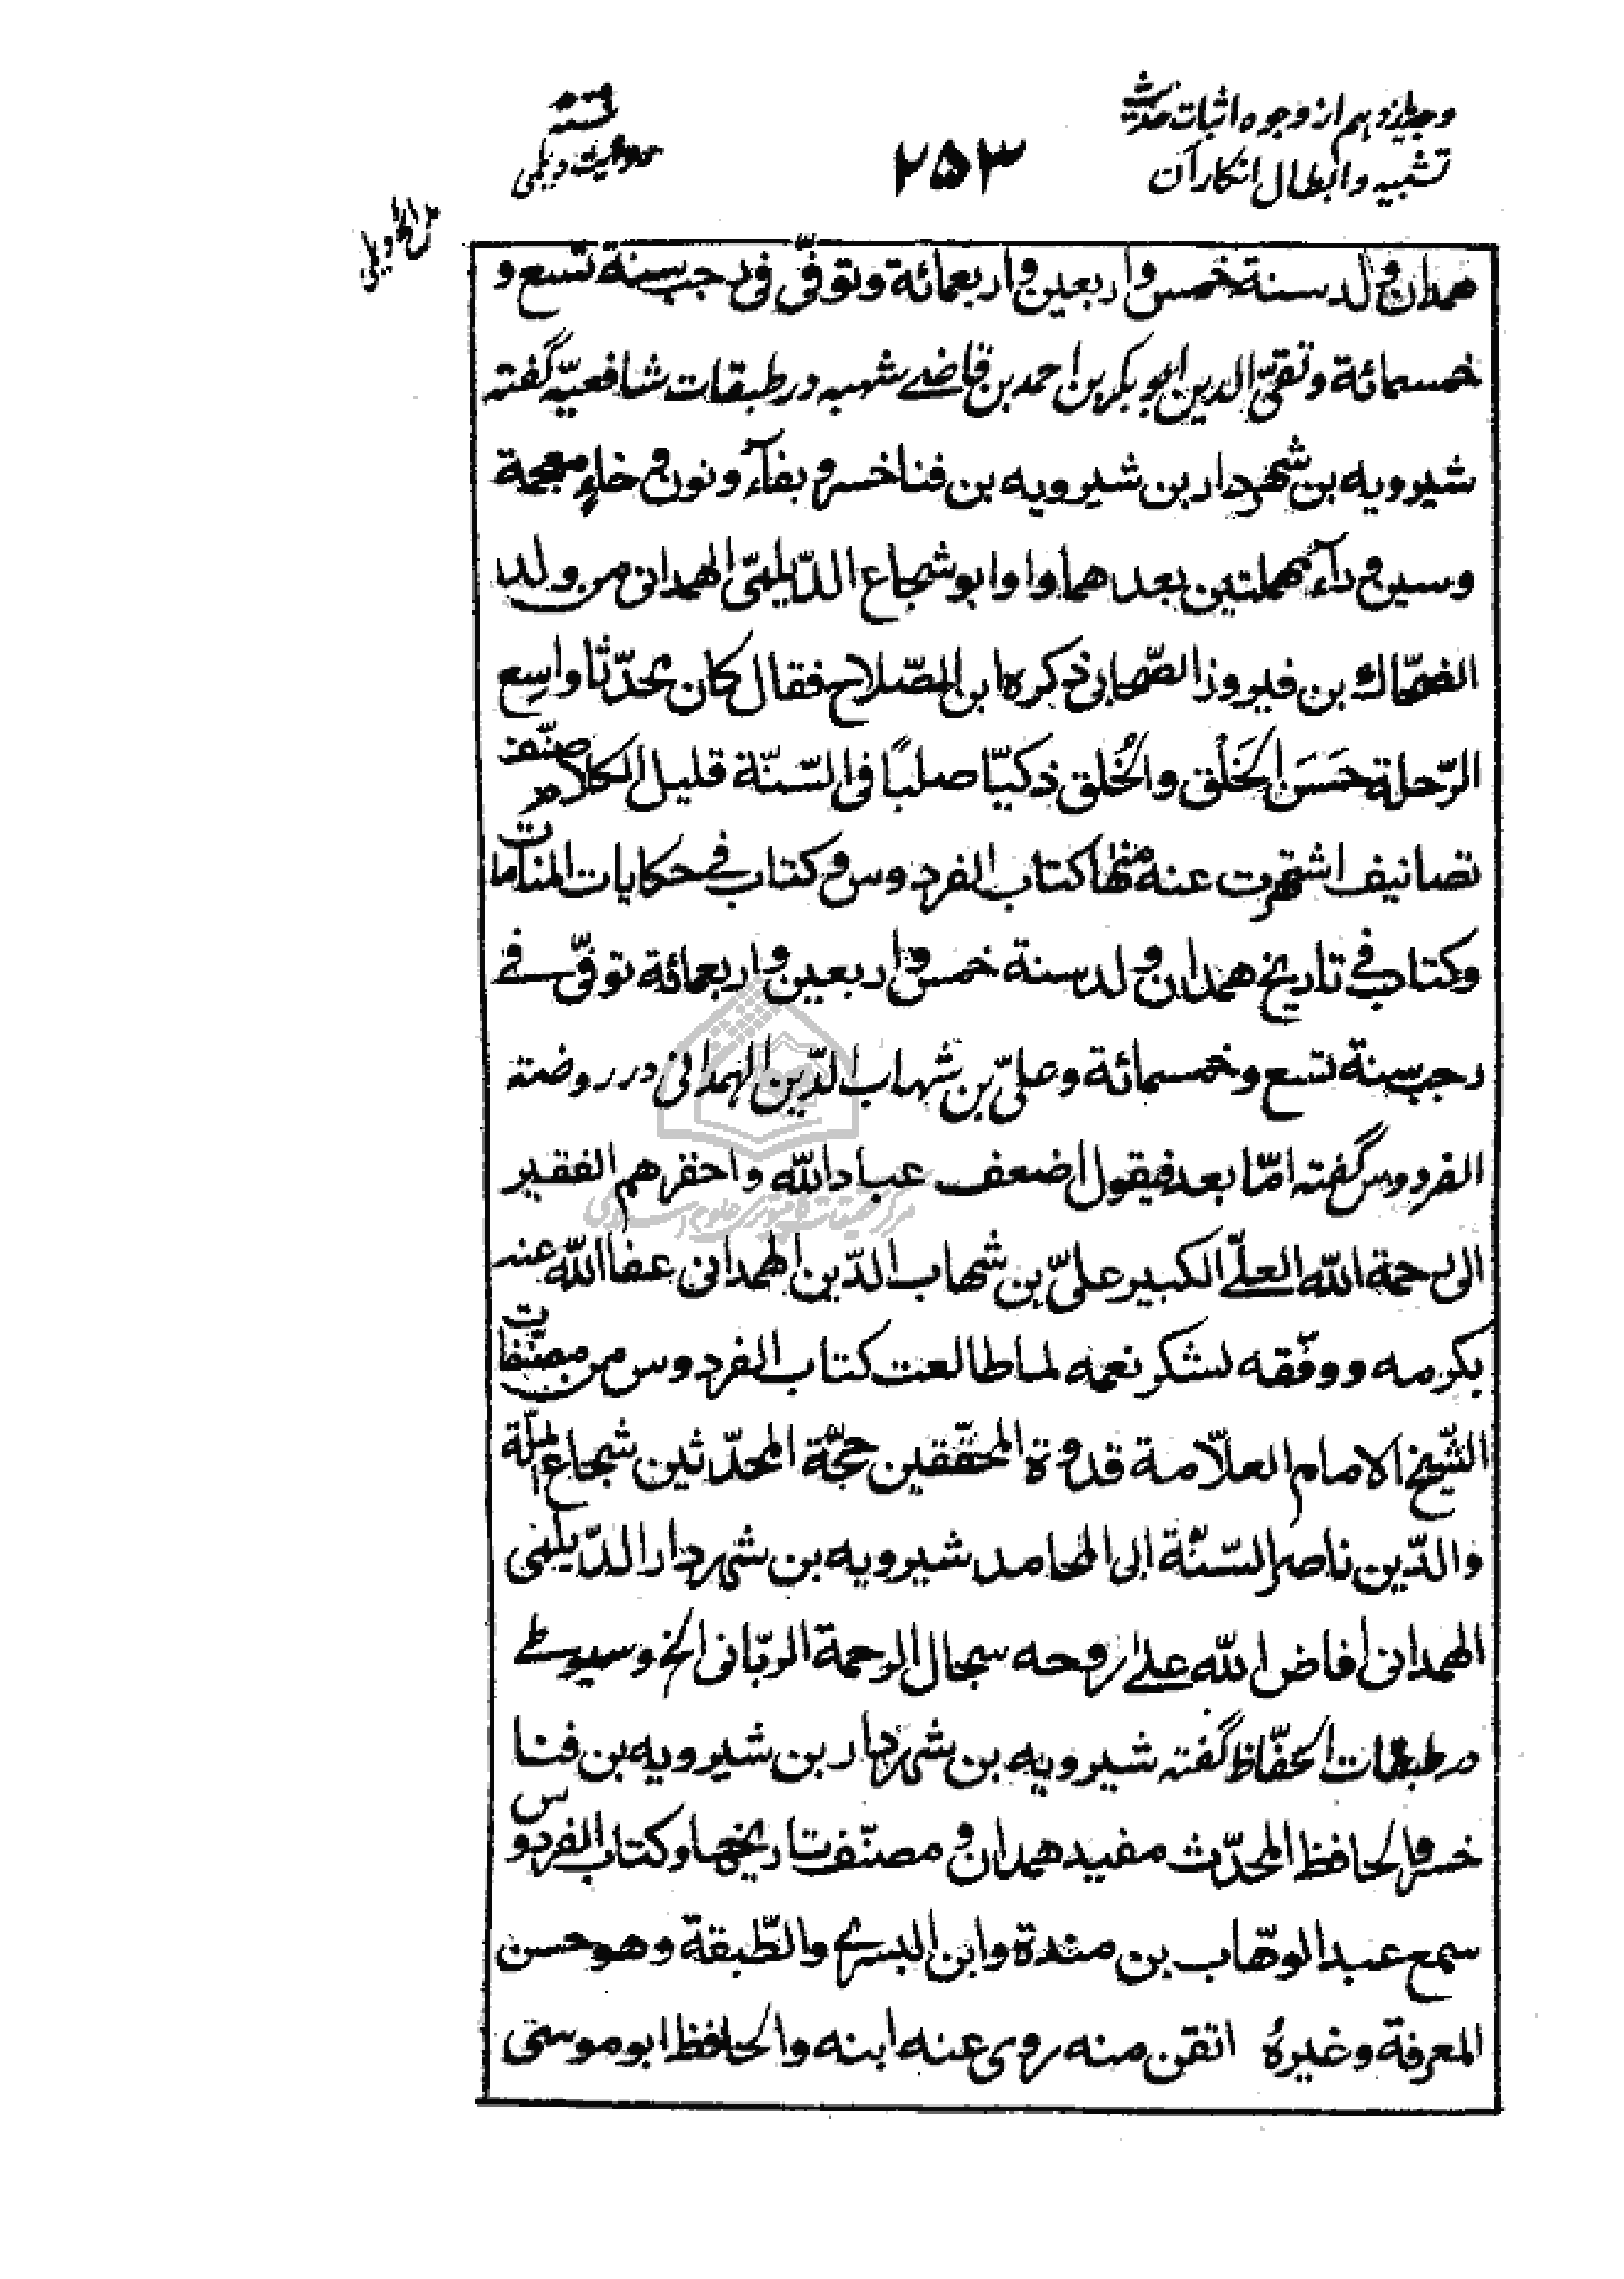 وجه یازدهم از وجوه اثبات حدیث
تشبیه و ابطال انکار آن
۲۵۳
تتمه
روایت دیلمی
همدان ولد سنة خمس واربعین واربعمائة وتوفّی فی رجب سنة تسع و
خمسمائة وتقیّ الدین ابو بکر بن احمد بن قاضے شهبه در طبقات شافعیّه گفته
شیرویه بن شهردار بن شیرویه بن فناخسرو بفآء ونون وخاءٍ معجمة
وسین ورآء مهملتین بعدهما واو ابو شجاع الدّیلمیّ الهمدانی من ولد
الضحّاك بن فیروز الصّحابی ذکره ابن الصّلاح فقال کان محدّثا واسِع
الرّحلة حَسَن الخَلْق والخُلق ذکیّا صلبًا فی السّنّة قلیل الکلام صنّف
تصانیف اشتهرت عنه منها کتاب الفردوس وکتاب فے حکایات المنامات
وکتاب فے تاریخ همدان ولد سنة خمس واربعین واربعمائة توفّی فے
رجب سنة تسع وخمسمائة وعلیّ بن شهاب الدّین الهمدانی در روضة
الفردوس گفته امّا بعد فیقول اضعف عباد الله واحقرهم الفقیر
الی رحمة الله العلّے الکبیر علیّ بن شهاب الدّین الهمدانی عفا الله عنه
بکرمه ووفّقه لشکر نعمه لما طالعت کتاب الفردوس من مصنّفات
الشّیخ الامام العلّامة قدوة المحقّقین حجّة المحدّثین شجاع الملّة
والدّین ناصر السّنّة ابی المحامد شیرویه بن شهردار الدّیلمی
الهمدانی افاض الله علے روحه سجال الرحمة الربّانی الخ وسیوطے
در طبقات الحفّاظ گفته شیرویه بن شهردار بن شیرویه بن فنا
خسرو الحافظ المحدّث مفید همدان ومصنّف تاریخها وکتاب الفردوس
سمع عبد الوهّاب بن مندة وابن البسرے والطّبقة وهو حسن
المعرفة وغیرهُ اتقن منه روی عنه ابنه والحافظ ابو موسی